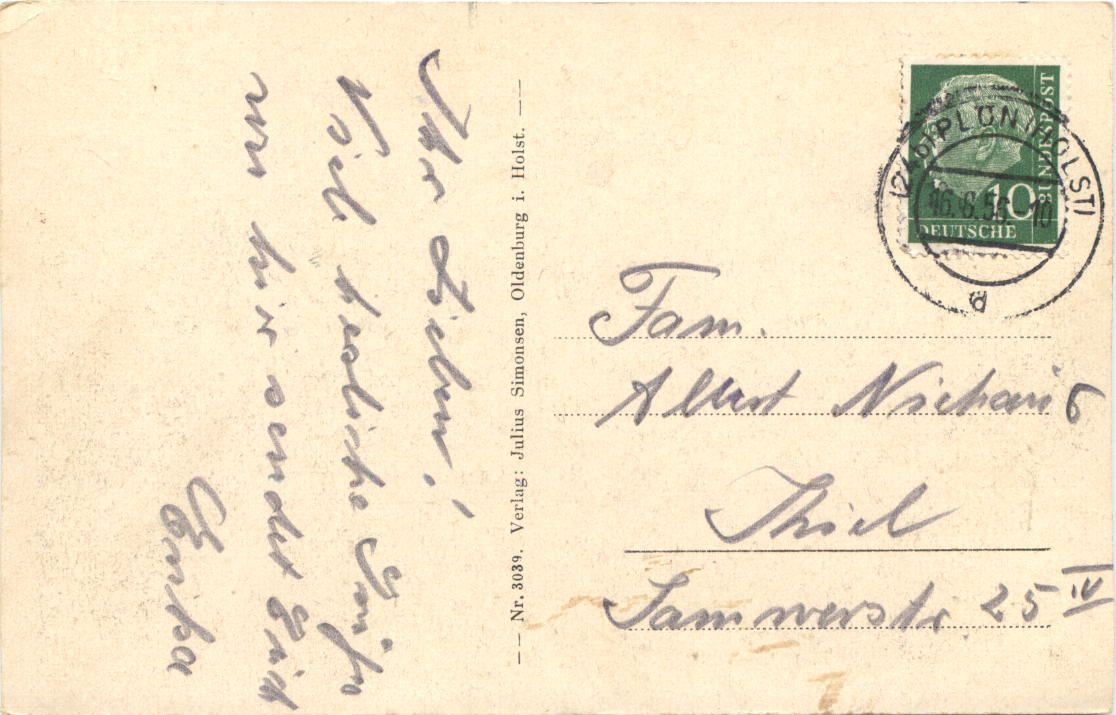 Ihr Lieben!
Viele herzliche Grüße
von hier sendet Euch
Erika
Nr. 3039. Verlag: Julius Simonsen, Oldenburg i. Holst.
(24b) PLÖN (HOLST)
16.6.56. 10
a
BUNDESPOST
10
DEUTSCHE
Fam.
Albert
Kiel
Samwerstr. 25 IV